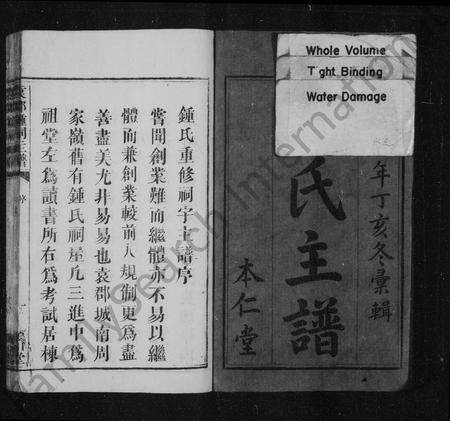 Whole Volume
Tight Binding
Water Damage
年丁亥冬彙輯
氏主譜
本仁堂
鍾氏重修祠宇主譜序
嘗聞創業難而繼體亦不易以繼
體而兼創業較前人規制更為盡
善盡美尤非易易也袁郡城南周
家嶺舊有鍾氏祠屋凢三進中為
祖堂左為讀書所右為考試居棟
序
FamilySearch International